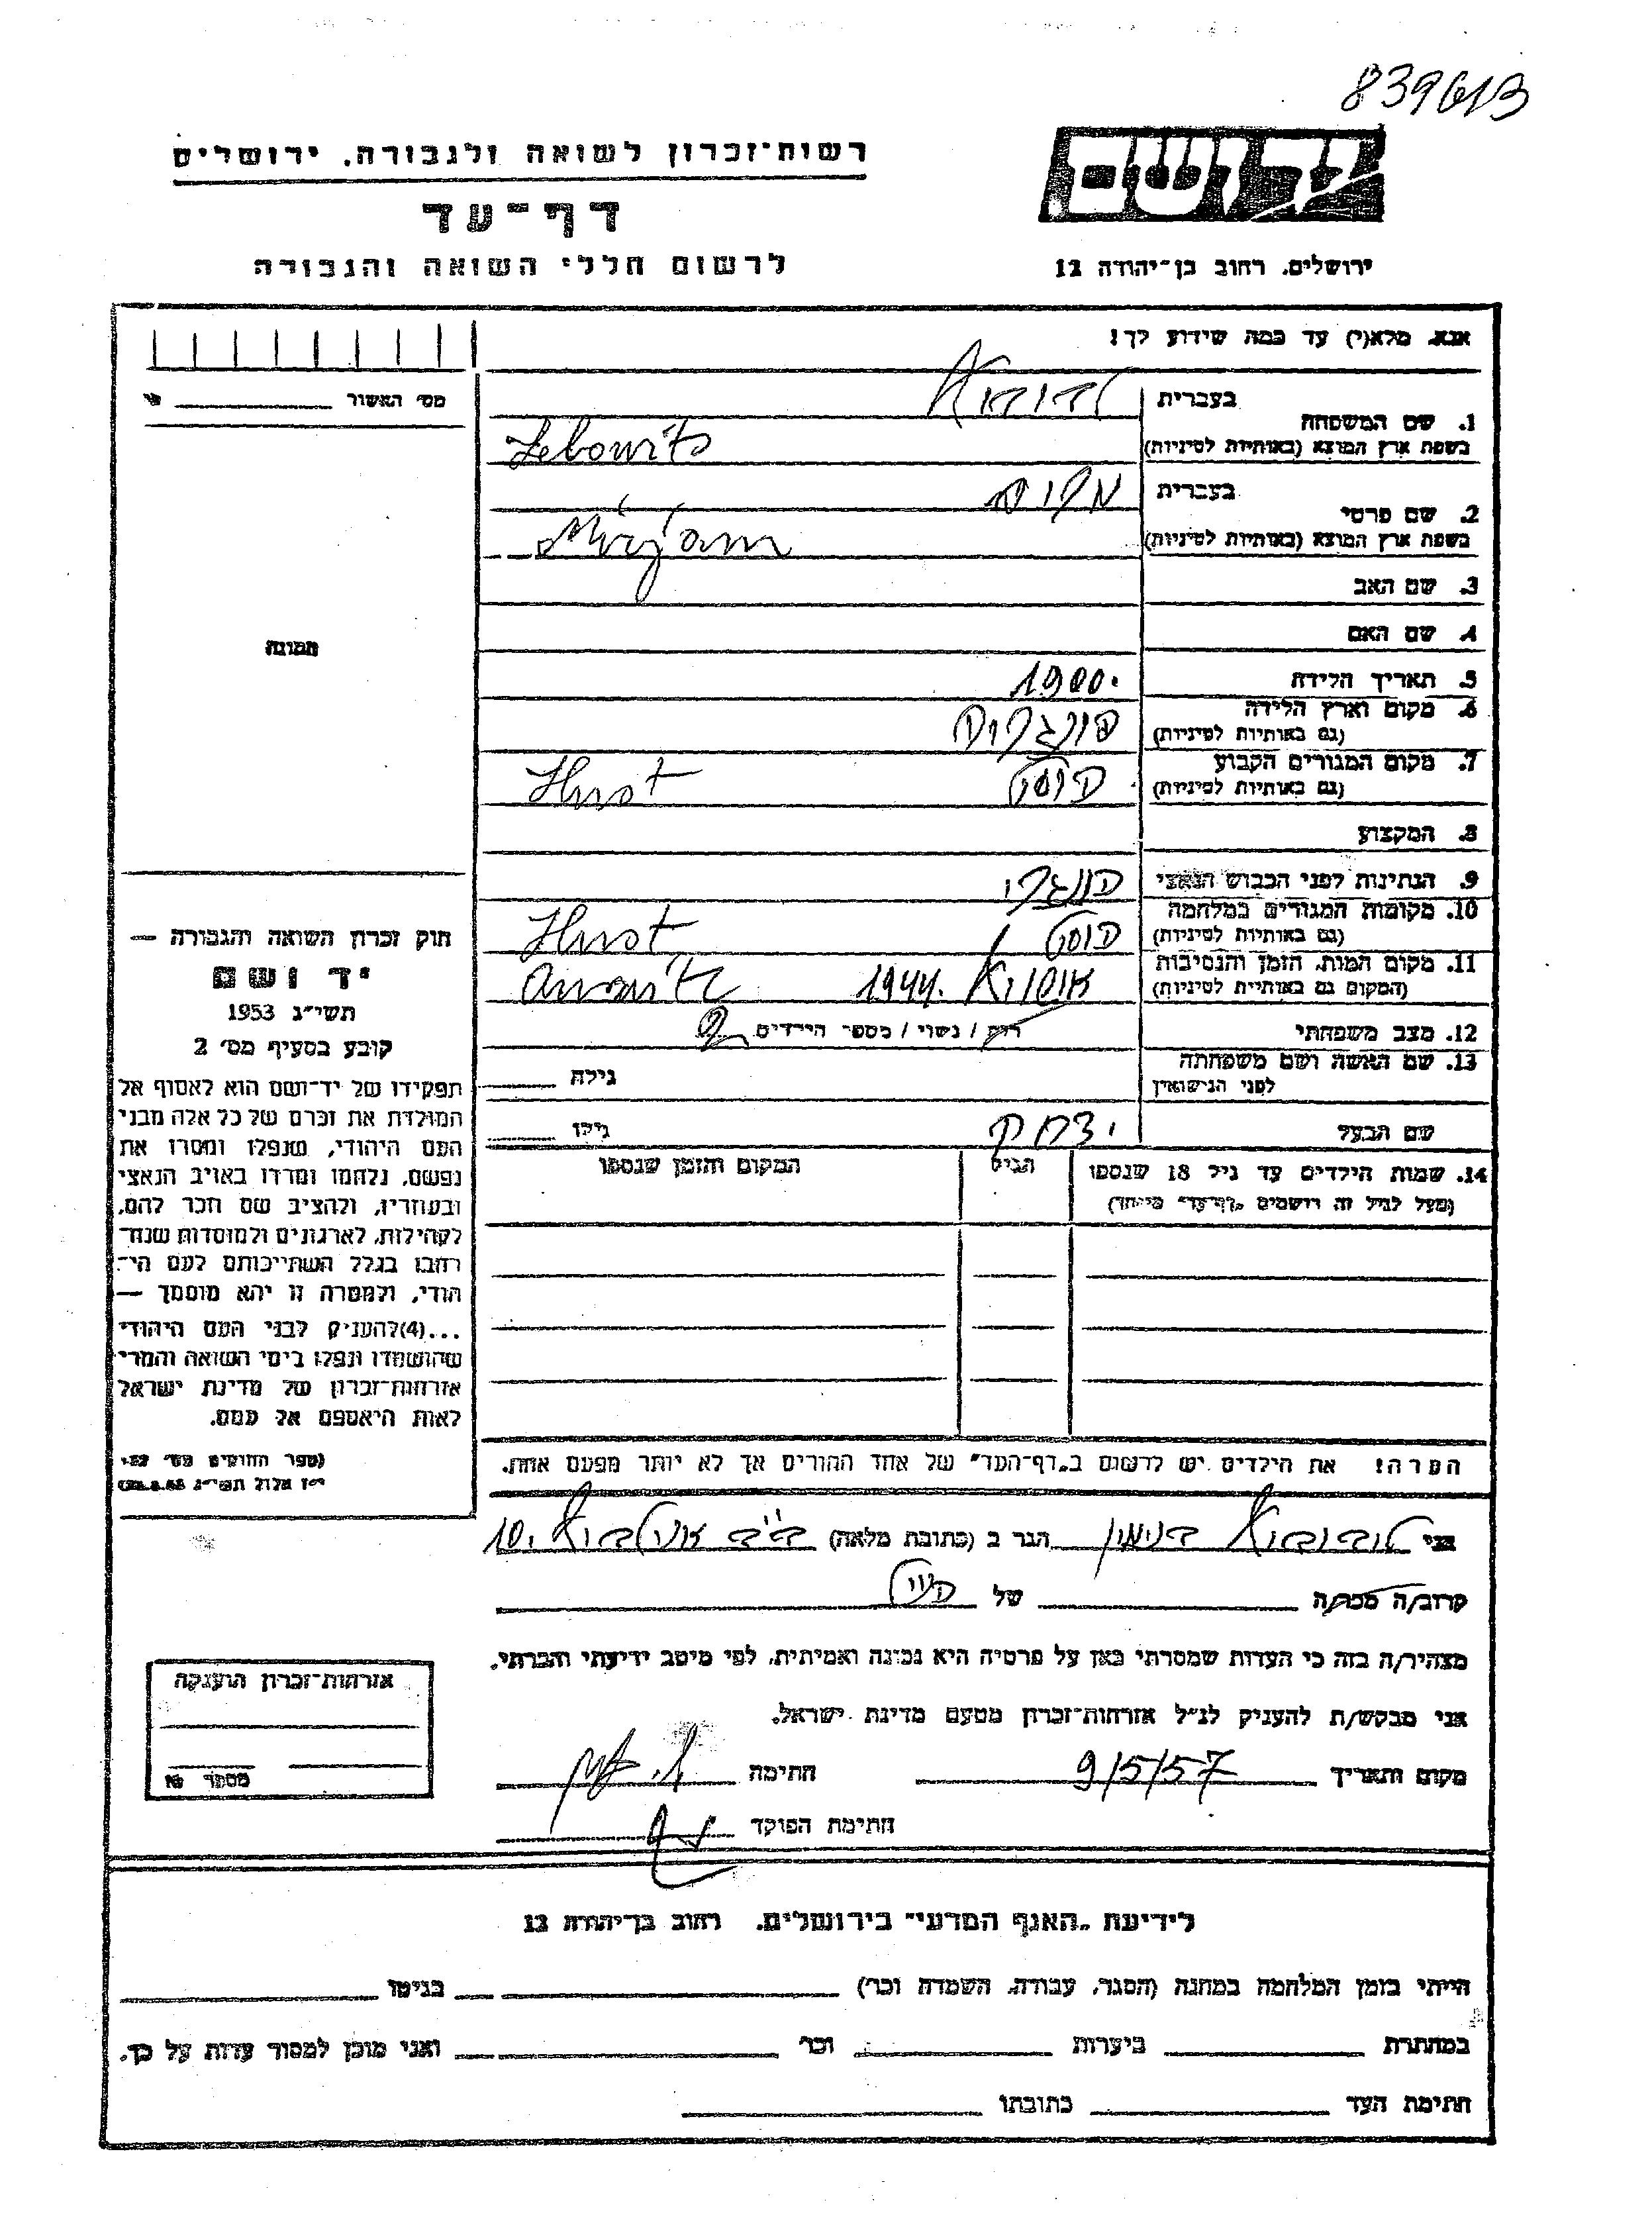 839613
רשות־זכרון לשואה ולגבורה, ירושלים
יד ושם
דף־עד
לרשום חללי השואה והגבורה
ירושלים, רחוב בן־יהודה 12
אנא, מלא(י) עד כמה שידוע לך!
מס׳ האשור
1. שם המשפחה
בעברית
בשפת ארץ המוצא (באותיות לטיניות) Lebowits
2. שם פרטי
בעברית מרים
בשפת ארץ המוצא (באותיות לטיניות) Mirjam
3. שם האב
4. שם האם
תמונה
5. תאריך הלידה 1900.
6. מקום וארץ הלידה
(גם באותיות לטיניות) הונגריה
7. מקום המגורים הקבוע
(גם באותיות לטיניות) הוסט Hust
8. המקצוע
9. הנתינות לפני הכבוש הנאצי הונגרי
10. מקומות המגורים במלחמה
(גם באותיות לטיניות) הוסט Hust
11. מקום המות, הזמן והנסיבות
(המקום גם באותיות לטיניות) 1944.
12. מצב משפחתי רווק / נשוי / מספר הילדים 2
13. שם האשה ושם משפחתה
לפני הנישואין גילה
שם הבעל יצחק גילו
14. שמות הילדים עד גיל 18 שנספו הגיל המקום והזמן שנספו
(מעל לגיל זה רושמים „דף־עד״ מיוחד)
חוק זכרון השואה והגבורה —
יד ושם
תשי״ג 1953
קובע בסעיף מס׳ 2
תפקידו של יד־ושם הוא לאסוף אל
המולדת את זכרם של כל אלה מבני
העם היהודי, שנפלו ומסרו את
נפשם, נלחמו ומרדו באויב הנאצי
ובעוזריו, ולהציב שם וזכר להם,
לקהילות, לארגונים ולמוסדות שנח־
רבו בגלל השתייכותם לעם הי־
הודי, ולמטרה זו יהא מוסמך —
...(4)להעניק לבני העם היהודי
שהושמדו ונפלו בימי השואה והמרי
אזרחות־זכרון של מדינת ישראל
לאות היאספם אל עמם.
(ספר החוקים מס׳ 132
י״ז אלול תשי״ג 28.8.53)
הערה! את הילדים יש לרשום ב„דף־העד״ של אחד ההורים אך לא יותר מפעם אחת.
אני בנימין הגר ב (כתובת מלאה) 10.
קרוב/ה מכר/ה של
מצהיר/ה בזה כי העדות שמסרתי כאן על פרטיה היא נכונה ואמיתית, לפי מיטב ידיעתי והכרתי.
אני מבקש/ת להעניק לנ״ל אזרחות־זכרון מטעם מדינת ישראל.
מקום ותאריך 9/5/57 חתימה
חתימת הפוקד
אזרחות־זכרון הוענקה
מספר №
לידיעת „האגף המדעי״ בירושלים, רחוב בן־יהודה 12
הייתי בזמן המלחמה במחנה (הסגר, עבודה, השמדה וכו׳) בגיטו
במחתרת ביערות וכו׳ ואני מוכן למסור עדות על כך.
חתימת העד כתובתו